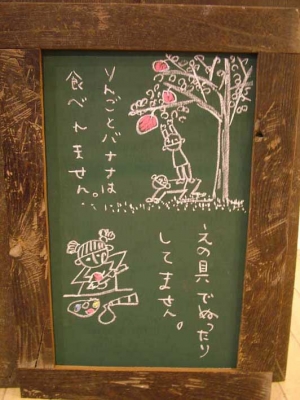 りんごとバナナは
食べれません。
えの具でぬったり
してません。